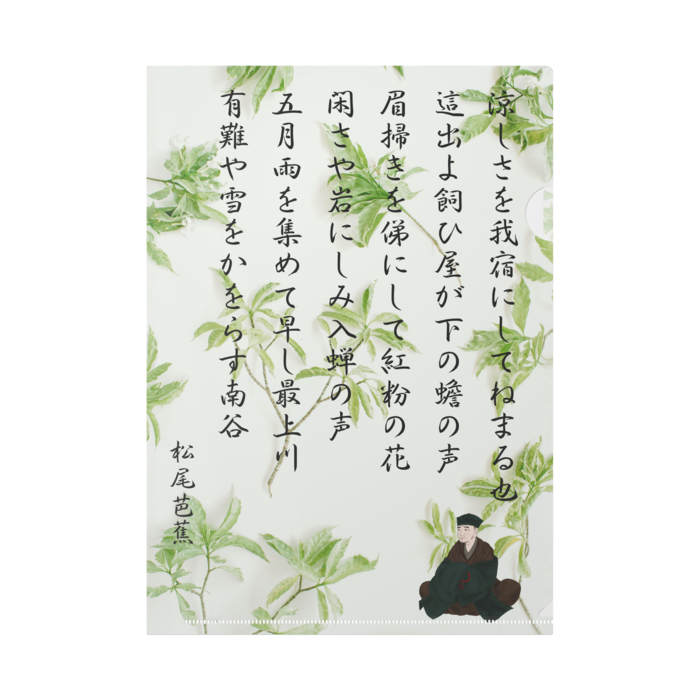 涼しさを我宿にしてねまる也
這出よ飼ひ屋が下の蟾の声
眉掃きを俤にして紅粉の花
閑さや岩にしみ入蝉の声
五月雨を集めて早し最上川
有難や雪をかをらす南谷
松尾芭蕉